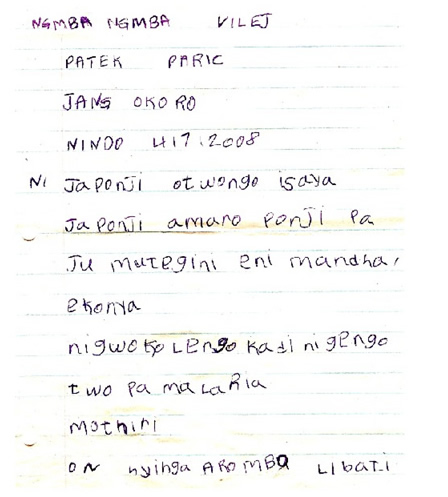 NGMBA NGMBA VILEJ
PATEK PARIC
JANG OKORO
NINDO 417.2008
NI Japonji otwongo isaya
Japonji amaro ponji pa
Ju mutegini eni mandha,
ekonya
nigwoko Lengo kadi nigengo
two pa maLaRia
mothiri
on nyinga AROMBO Libati